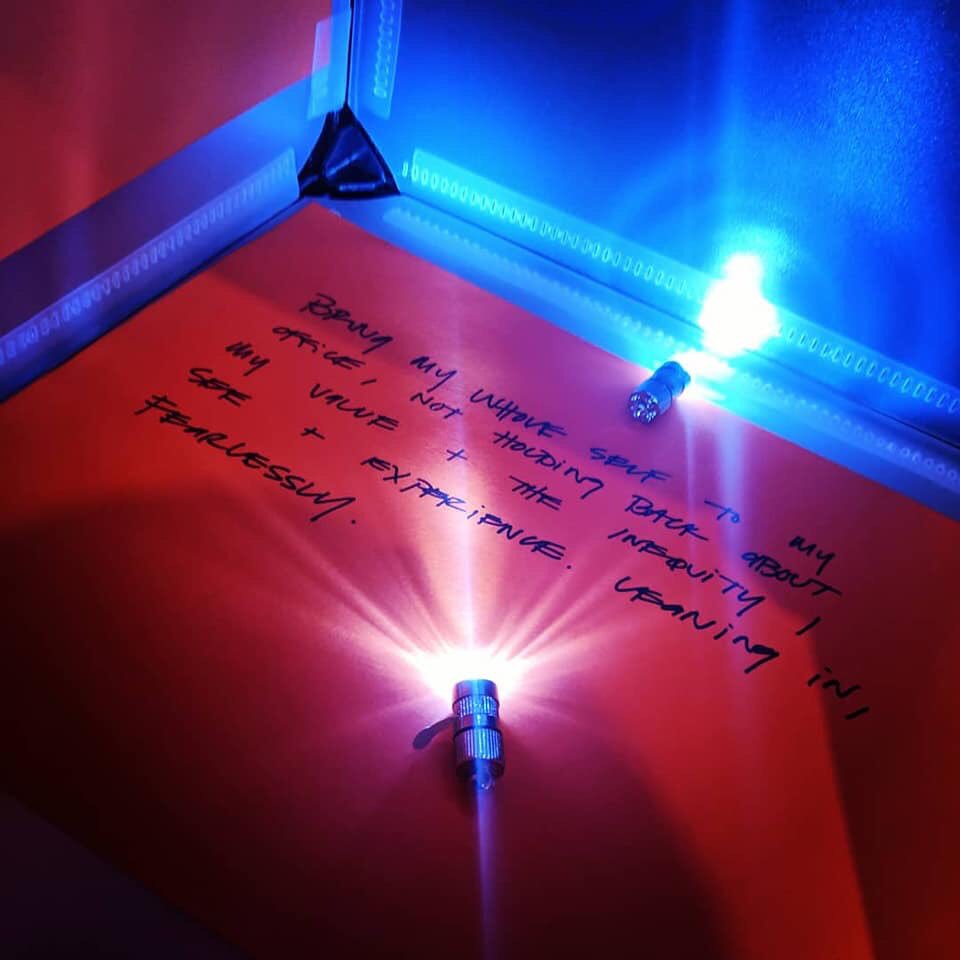 BRING MY WHOLE SELF TO MY
OFFICE, NOT HOLDING BACK ABOUT
MY VALUE + THE INEQUITY I
SEE + EXPERIENCE. LEANING IN,
FEARLESSLY.